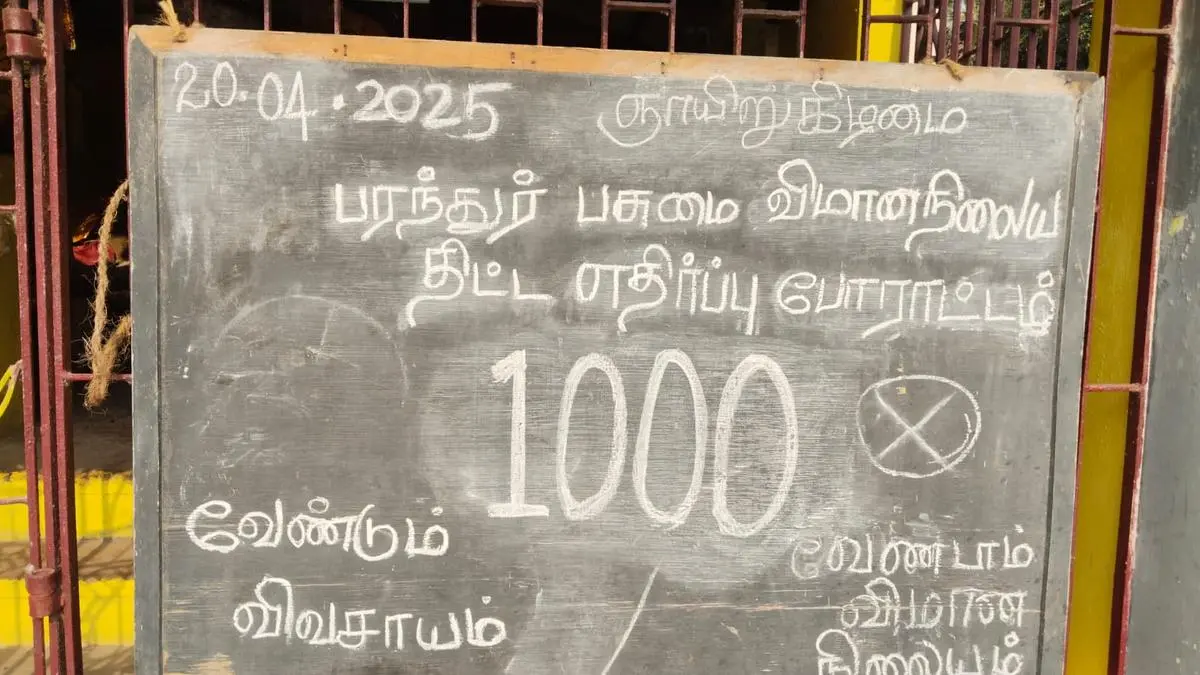 20.04.2025 ஞாயிறுகிழமை
பரந்தூர் பசுமை விமானநிலைய
திட்ட எதிர்ப்பு போராட்டம்
1000
வேண்டும் வேண்டாம்
விவசாயம் விமான
நிலையம்